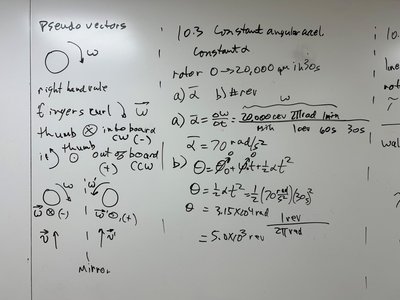 Pseudo vectors
ω
right hand rule
fingers curl ω
thumb ⊗ into board
CW (-)
thumb ⊙ out of board
(+) CCW
ω ω'
ω ⊗ (-) ω' ⊙ (+)
v v'
Mirror
10.3 Constant angular accel
Constant α
rotor 0→20,000 rpm in 30s
a) α b) # rev
ω
a) α = Δω/Δt = 20,000 rev/min 2π rad/1 rev 1min/60s /30s
α = 70 rad/s²
b) θ = θ₀ + ω₀t + ½αt²
θ = ½αt² = ½(70 rad/s²)(30s)²
θ = 3.15x10⁴ rad 1rev/2π rad
= 5.0x10³ rev
10.